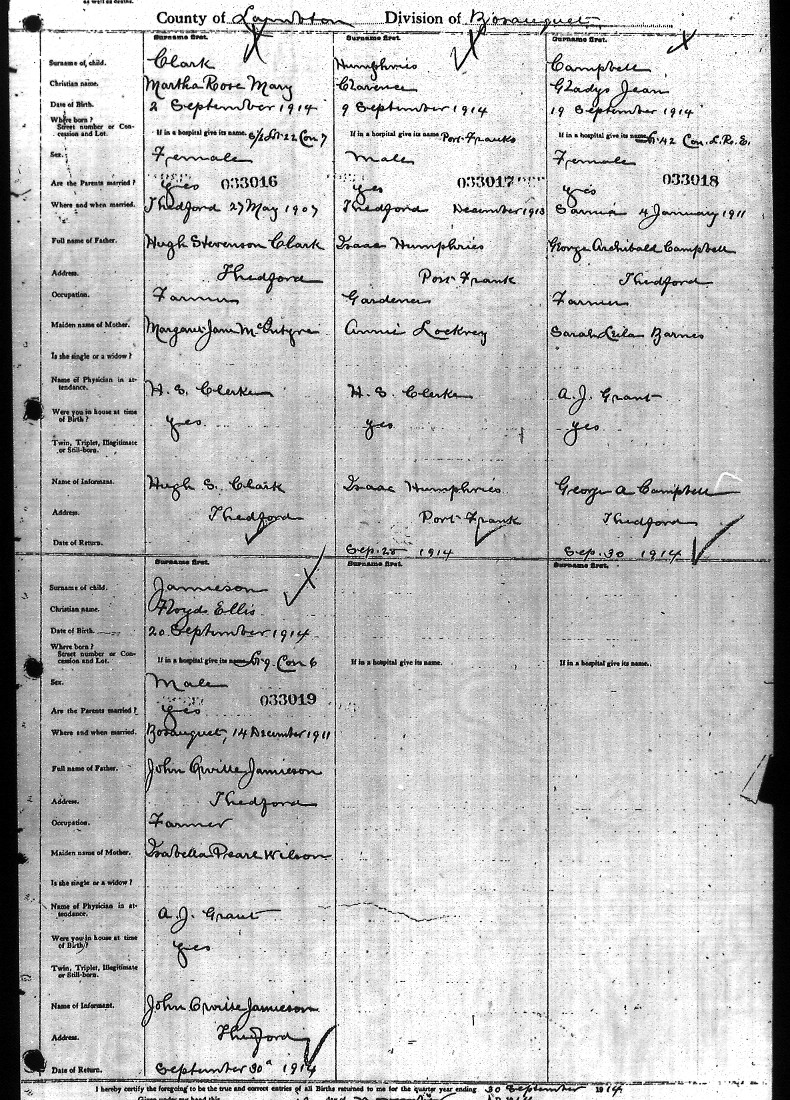 as well as deaths.
County of Lambton Division of Bosanquet
Surname first. Surname first. Surname first.
Surname of child. Clark Humphries Campbell
Christian name. Martha Rose Mary Clarence Gladys Jean
Date of Birth. 2 September 1914 9 September 1914 19 September 1914
Where born?
Street number or Con-
cession and Lot. If in a hospital give its name. S/2 Lt. 22 Con 7 If in a hospital give its name. Port Franks If in a hospital give its name. Lt. 42 Con. L.R.E.
Sex. Female Male Female
033016 033017 033018
Are the Parents married? yes yes yes
Where and when married. Thedford 27 May 1907 Thedford December 1913 Sarnia 4 January 1911
Full name of Father. Hugh Stevenson Clark Isaac Humphries George Archibald Campbell
Address. Thedford Port Frank Thedford
Occupation. Farmer Gardener Farmer
Maiden name of Mother. Margaret Jane McIntyre Annie Lockrey Sarah Leila Barnes
Is she single or a widow?
Name of Physician in at-
tendance. H. S. Clerke H. S. Clerke A. J. Grant
Were you in house at time
of Birth? yes yes yes
Twin, Triplet, Illegitimate
or Still-born.
Name of Informant. Hugh S. Clark Isaac Humphries George A Campbell
Address. Thedford Port Frank Thedford
Date of Return. Sep. 25 1914 Sep. 30 1914
Surname first. Surname first. Surname first.
Surname of child. Jamieson
Christian name. Floyd Ellis
Date of Birth. 20 September 1914
Where born?
Street number or Con-
cession and Lot. If in a hospital give its name. Lt. 9. Con 6 If in a hospital give its name. If in a hospital give its name.
Sex. Male
033019
Are the Parents married? yes
Where and when married. Bosanquet, 14 December 1911
Full name of Father. John Orville Jamieson
Address. Thedford
Occupation. Farmer
Maiden name of Mother. Isabella Pearl Wilson
Is she single or a widow?
Name of Physician in at-
tendance. A. J. Grant
Were you in house at time
of Birth? yes
Twin, Triplet, Illegitimate
or Still-born.
Name of Informant. John Orville Jamieson
Address. Thedford
Date of Return. September 30th 1914
I hereby certify the foregoing to be the true and correct entries of all Births returned to me for the quarter year ending 30 September 1914
Given under my hand this day of